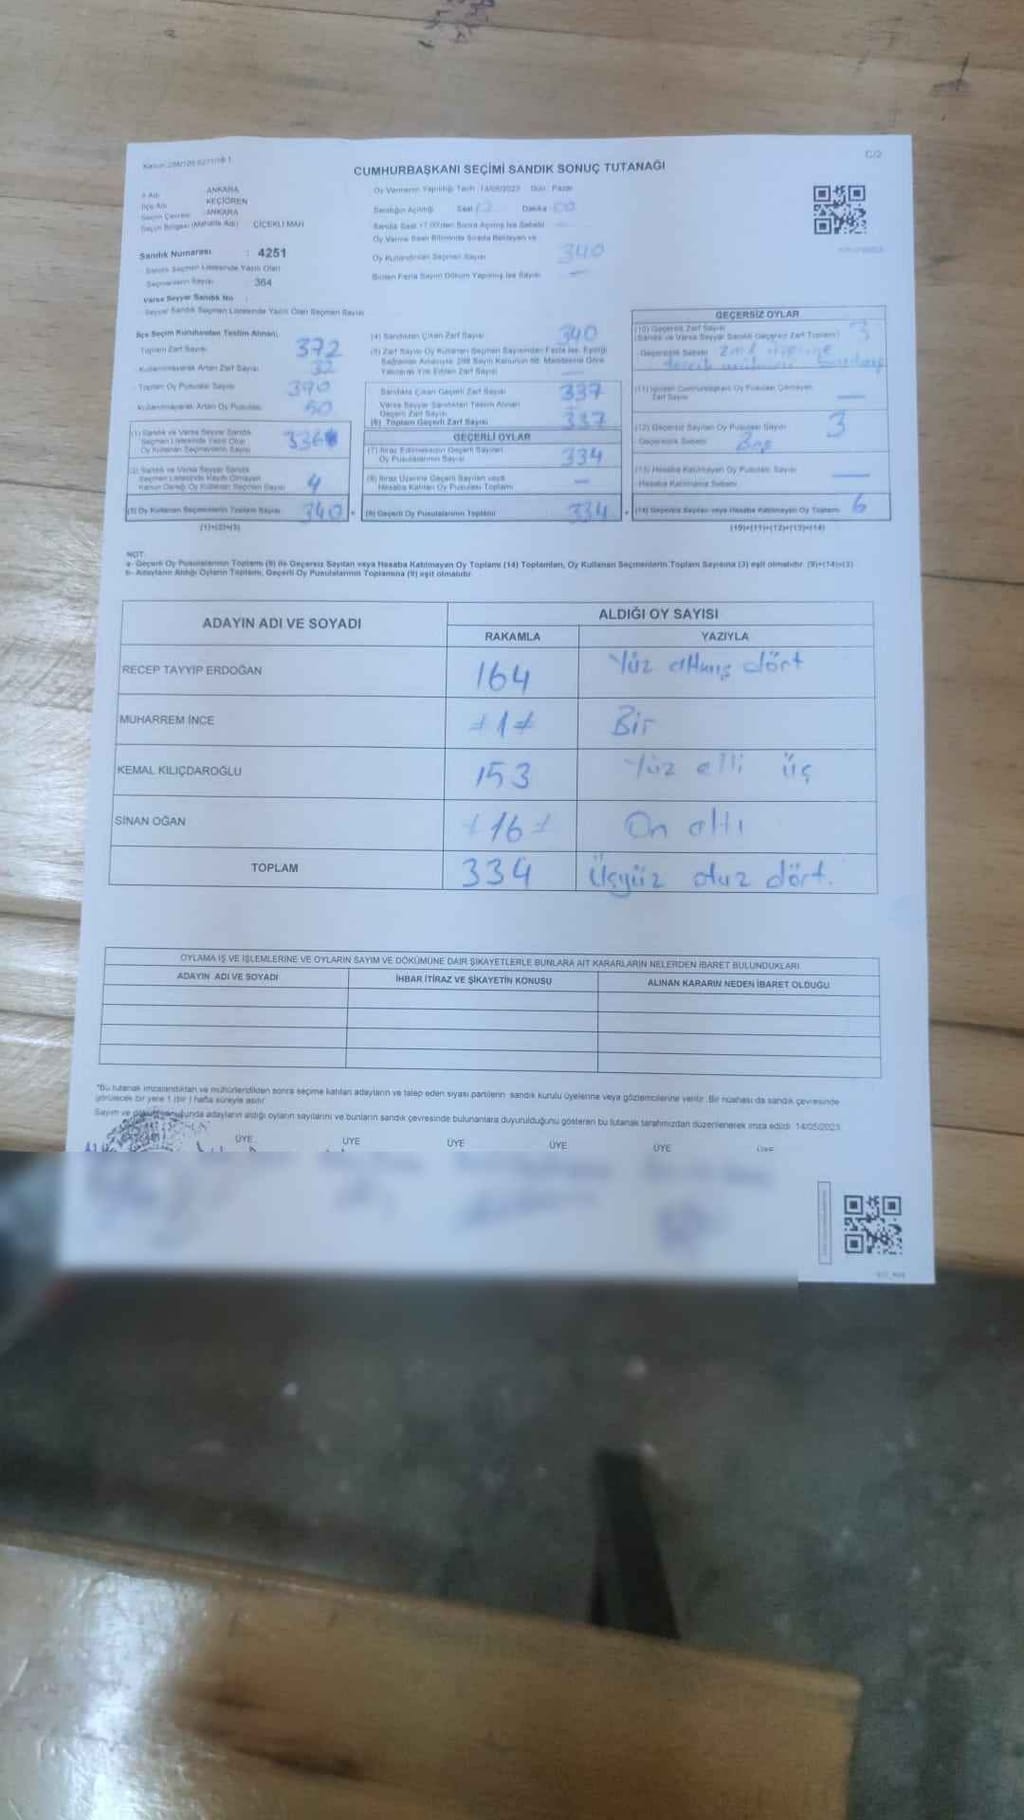 C/2
CUMHURBAŞKANI SEÇİMİ SANDIK SONUÇ TUTANAĞI
İl Adı ANKARA
İlçe Adı KEÇİÖREN
Seçim Çevresi ANKARA
Seçim Bölgesi (Mahalle Adı) ÇİÇEKLİ MAH
Sandık Numarası : 4251
Sandık Seçmen Listesinde Yazılı Olan
Seçmenlerin Sayısı 364
Varsa Seyyar Sandık No :
Seyyar Sandık Seçmen Listesinde Yazılı Olan Seçmen Sayısı
Oy Vermenin Yapıldığı Tarih : 14/05/2023 Gün : Pazar
Sandığın Açıldığı Saat Dakika 00
Oy Kullandırılan Seçmen Sayısı 340
Birden Fazla Sayım Döküm Yapılmış İse Sayısı —
İlçe Seçim Kurulundan Teslim Alınan;
Toplam Zarf Sayısı 372
Kullanılmayarak Artan Zarf Sayısı 32
Toplam Oy Pusulası Sayısı 390
Kullanılmayarak Artan Oy Pusulası 50
(1) Sandık ve Varsa Seyyar Sandık
Seçmen Listesinde Yazılı Olan
Oy Kullanan Seçmenlerin Sayısı 336
(2) Sandık ve Varsa Seyyar Sandık
Seçmen Listesinde Kaydı Olmayan
Kanun Gereği Oy Kullanan Seçmen Sayısı 4
(3) Oy Kullanan Seçmenlerin Toplam Sayısı 340
(1)+(2)=(3)
(4) Sandıktan Çıkan Zarf Sayısı 340
(5) Zarf Sayısı Oy Kullanan Seçmen Sayısından Fazla İse, Eşitliği
Sağlamak Amacıyla; 298 Sayılı Kanunun 98. Maddesine Göre
Yakılarak Yok Edilen Zarf Sayısı —
Sandıkta Çıkan Geçerli Zarf Sayısı 337
Varsa Seyyar Sandıktan Teslim Alınan
Geçerli Zarf Sayısı
(6) Toplam Geçerli Zarf Sayısı 337
GEÇERLİ OYLAR
(7) İtiraz Edilmeksizin Geçerli Sayılan
Oy Pusulalarının Sayısı 334
(8) İtiraz Üzerine Geçerli Sayılan veya
Hesaba Katılan Oy Pusulası Toplamı —
(9) Geçerli Oy Pusulalarının Toplamı 334
GEÇERSİZ OYLAR
(10) Geçersiz Zarf Sayısı 3
(Sandık ve Varsa Seyyar Sandık Geçersiz Zarf Toplamı)
Geçersizlik Sebebi
(11) İçinden Cumhurbaşkanı Oy Pusulası Çıkmayan
Zarf Sayısı —
(12) Geçersiz Sayılan Oy Pusulası Sayısı 3
Geçersizlik Sebebi Boş
(13) Hesaba Katılmayan Oy Pusulası Sayısı —
Hesaba Katılmama Sebebi
(14) Geçersiz Sayılan veya Hesaba Katılmayan Oy Toplamı 6
(10)+(11)+(12)+(13)=(14)
NOT:
a- Geçerli Oy Pusulalarının Toplamı (9) ile Geçersiz Sayılan veya Hesaba Katılmayan Oy Toplamı (14) Toplamları, Oy Kullanan Seçmenlerin Toplam Sayısına (3) eşit olmalıdır. (9)+(14)=(3)
b- Adayların Aldığı Oyların Toplamı, Geçerli Oy Pusulalarının Toplamına (9) eşit olmalıdır.
ADAYIN ADI VE SOYADI ALDIĞI OY SAYISI
RAKAMLA YAZIYLA
RECEP TAYYİP ERDOĞAN 164 Yüz altmış dört
MUHARREM İNCE 1 Bir
KEMAL KILIÇDAROĞLU 153 Yüz elli üç
SİNAN OĞAN 16 On altı
TOPLAM 334 Üçyüz otuz dört.
OYLAMA İŞ VE İŞLEMLERİNE VE OYLARIN SAYIM VE DÖKÜMÜNE DAİR ŞİKAYETLERLE BUNLARA AİT KARARLARIN NELERDEN İBARET BULUNDUKLARI
ADAYIN ADI VE SOYADI İHBAR İTİRAZ VE ŞİKAYETİN KONUSU ALINAN KARARIN NEDEN İBARET OLDUĞU
*Bu tutanak imzalandıktan ve mühürlendikten sonra seçime katılan adayların ve talep eden siyasi partilerin sandık kurulu üyelerine veya gözlemcilerine verilir. Bir nüshası da sandık çevresinde
görülecek bir yere 1 (bir) hafta süreyle asılır.
Sayım ve dökümün sonunda adayların aldığı oyların sayılarını ve bunların sandık çevresinde bulunanlara duyurulduğunu gösteren bu tutanak tarafımızdan düzenlenerek imza edildi. 14/05/2023
ÜYE ÜYE ÜYE ÜYE ÜYE ÜYE